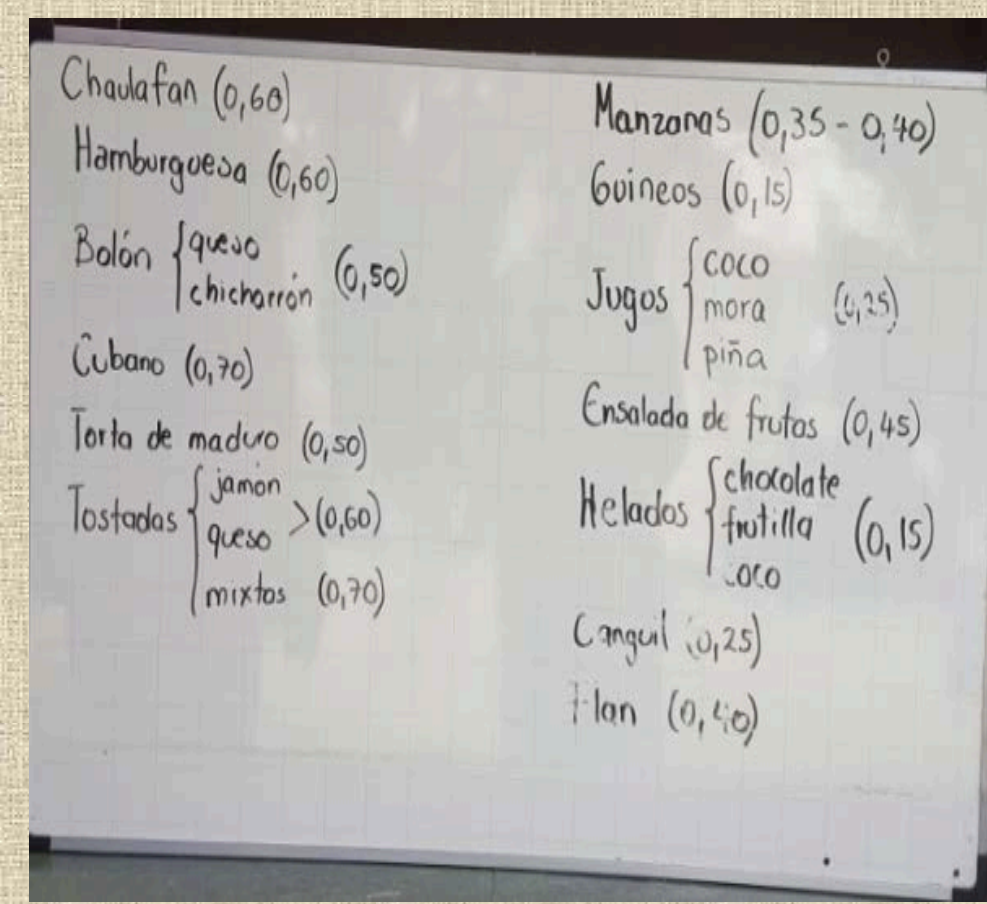 Chaulafan (0,60)
Hamburguesa (0,60)
Bolón { queso
chicharrón (0,50)
Cubano (0,70)
Torta de maduro (0,50)
Tostadas { jamón
queso > (0,60)
mixtos (0,70)
Manzanas (0,35 - 0,40)
Guineos (0,15)
Jugos { coco
mora (0,25)
piña
Ensalada de frutas (0,45)
Helados { chocolate
frutilla (0,15)
coco
Canguil (0,25)
Flan (0,40)